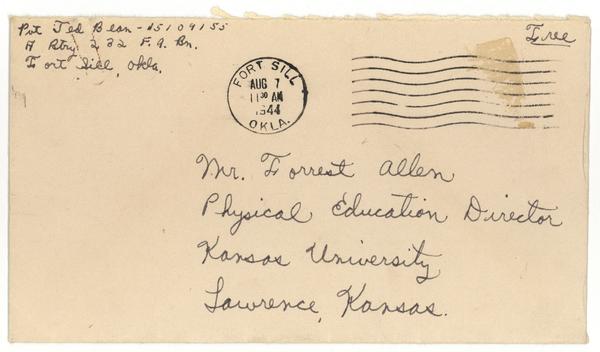 Pvt Ted Bean - 15109155
A Btry 232 F. A. Bn.
Fort Sill, Okla.
Free
FORT SILL
AUG 7
11 30 AM
1944
OKLA.
Mr. Forrest Allen
Physical Education Director
Kansas University
Lawrence, Kansas.